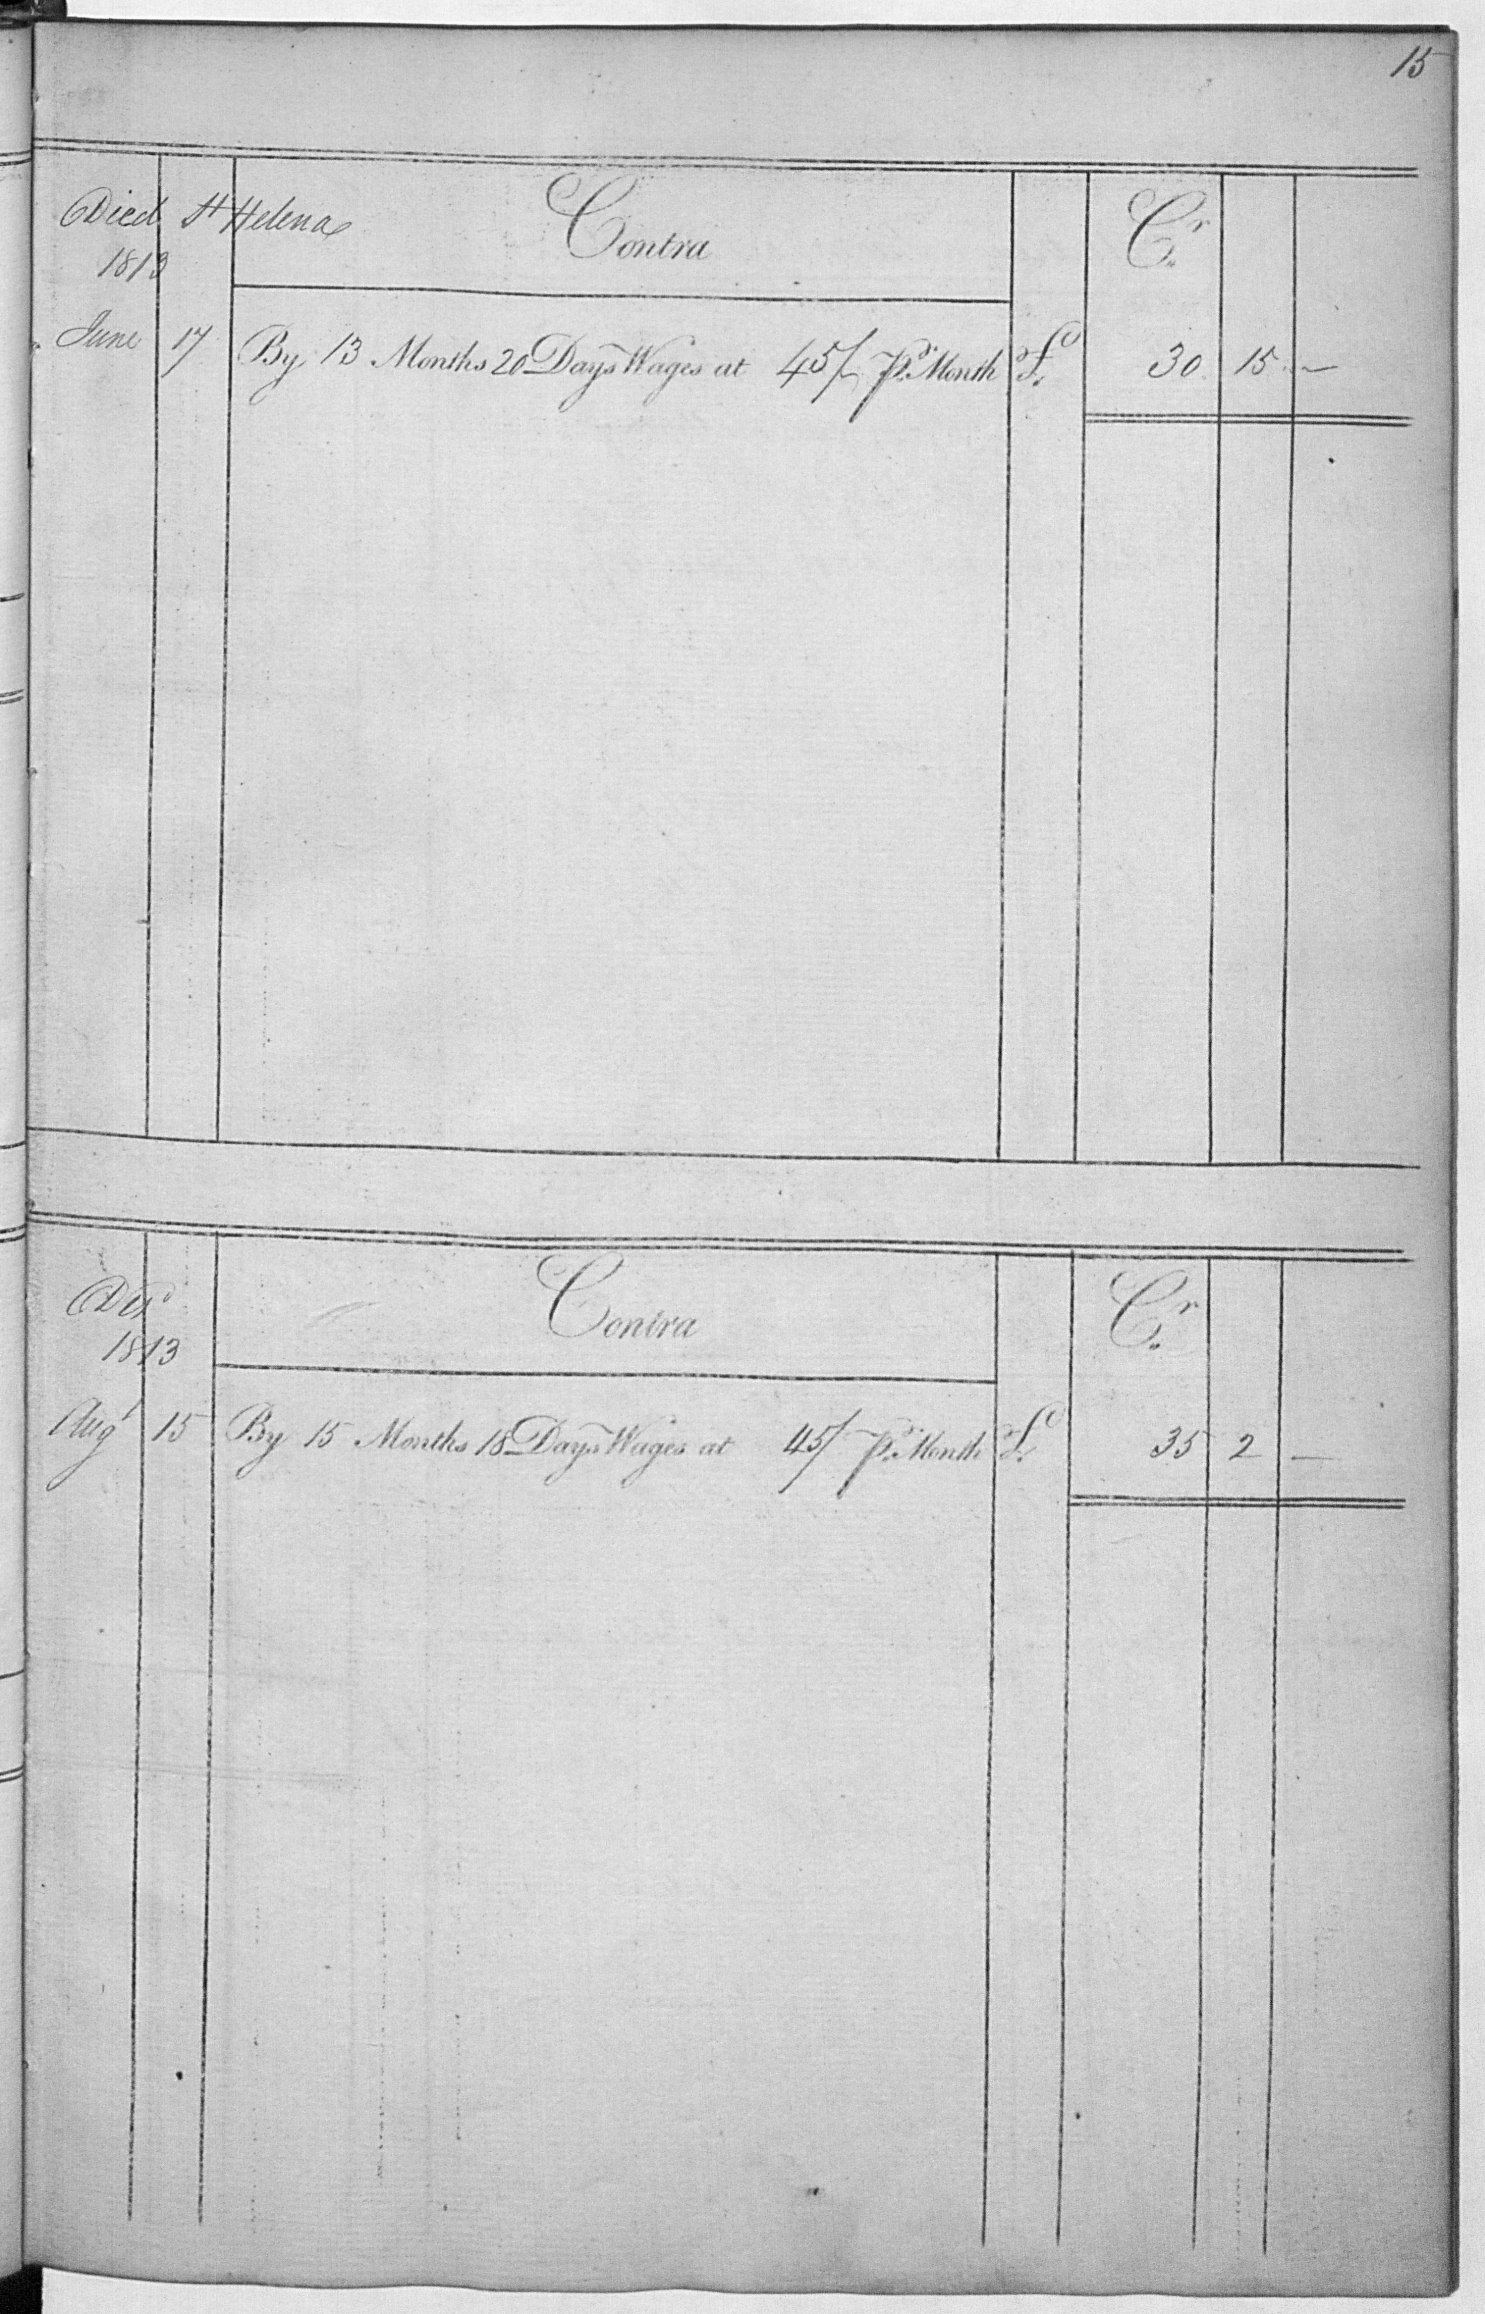 15
Died St Helena Contra Cr
1813
June 17 By 13 Months 20 Days Wages at 45/ Pr. Month £ 30 15 —
Disd Contra Cr
1813
Augt 15 By 15 Months 18 Days Wages at 45/ Pr. Month £ 35 2 —